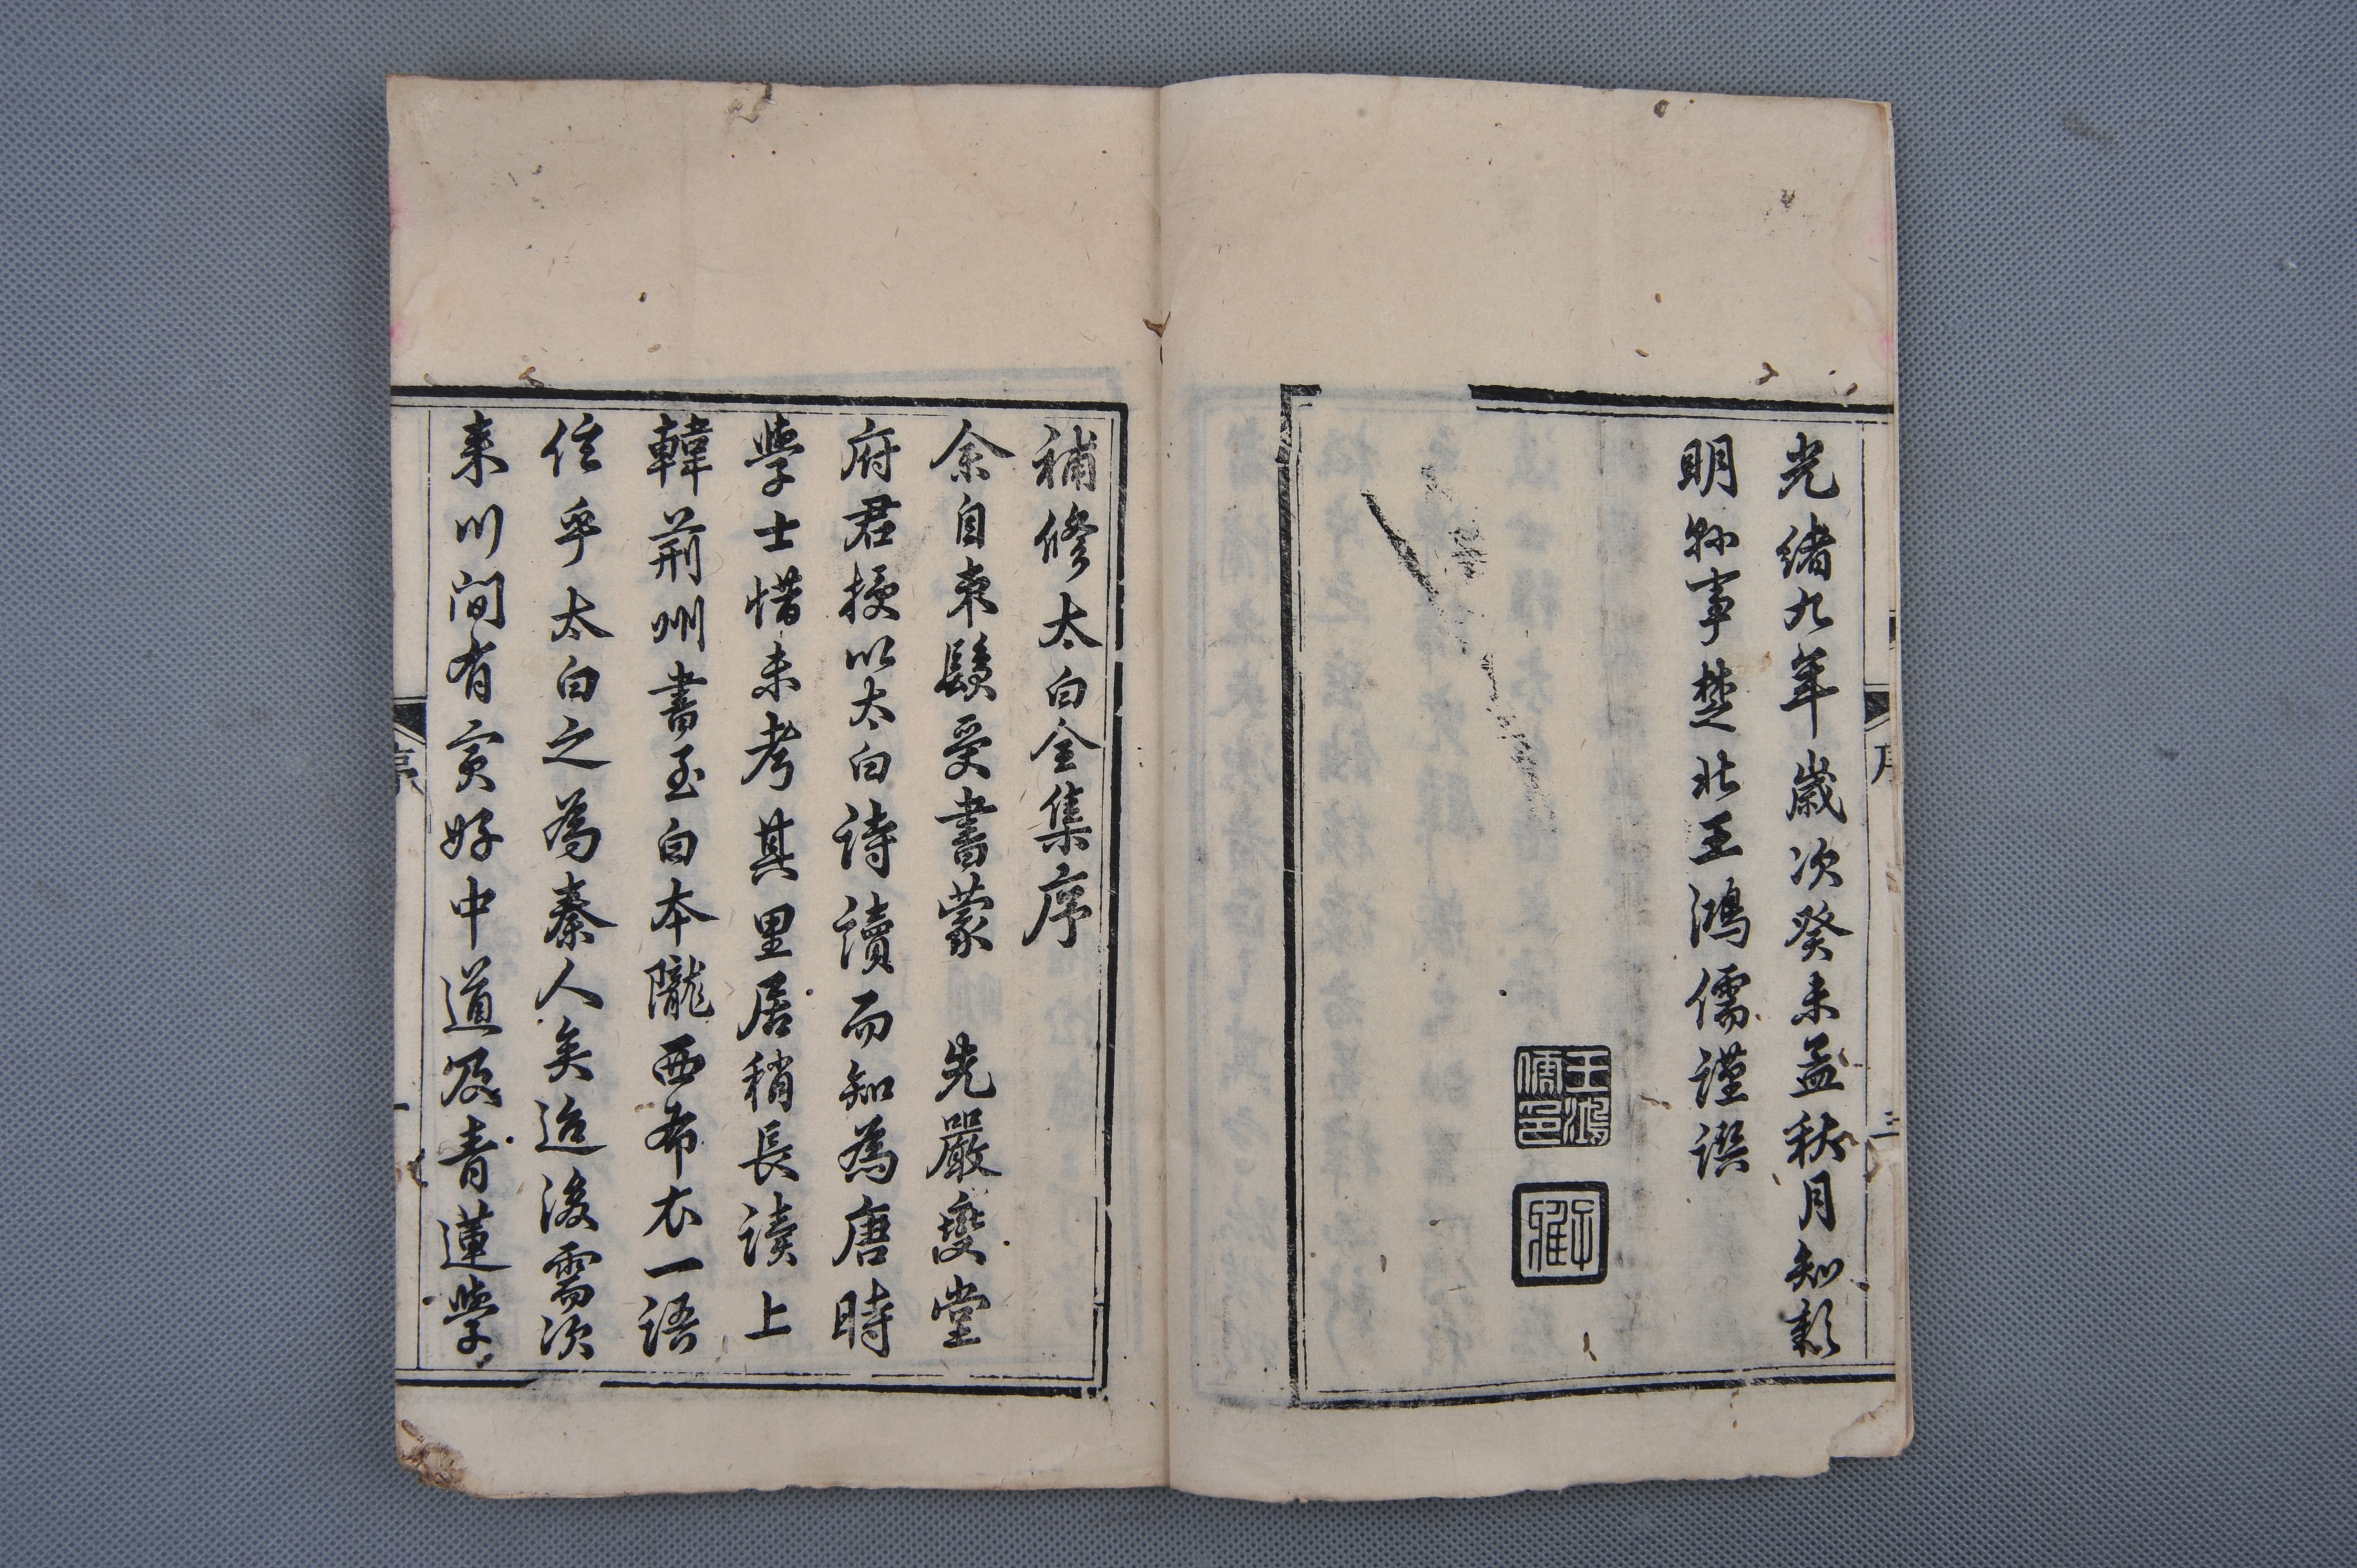 光緒九年歲次癸未孟秋月知彰
明縣事楚北王鴻儒謹譔
王鴻儒印
子雅
補修太白全集序
余自束髮受書蒙　先嚴燮堂
府君授以太白詩讀而知為唐時
學士惜未考其里居稍長讀上
韓荊州書至白本隴西布衣一語
信乎太白之為秦人矣迨後需次
來川間有寅好中道及青蓮學
序
一
三